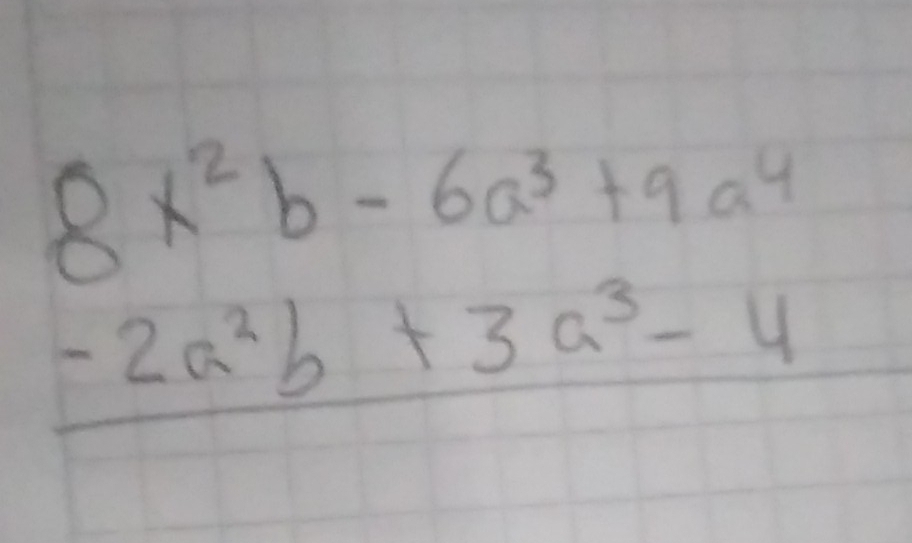 8x²b - 6a³ + 9a⁴
-2a²b + 3a³ - 4